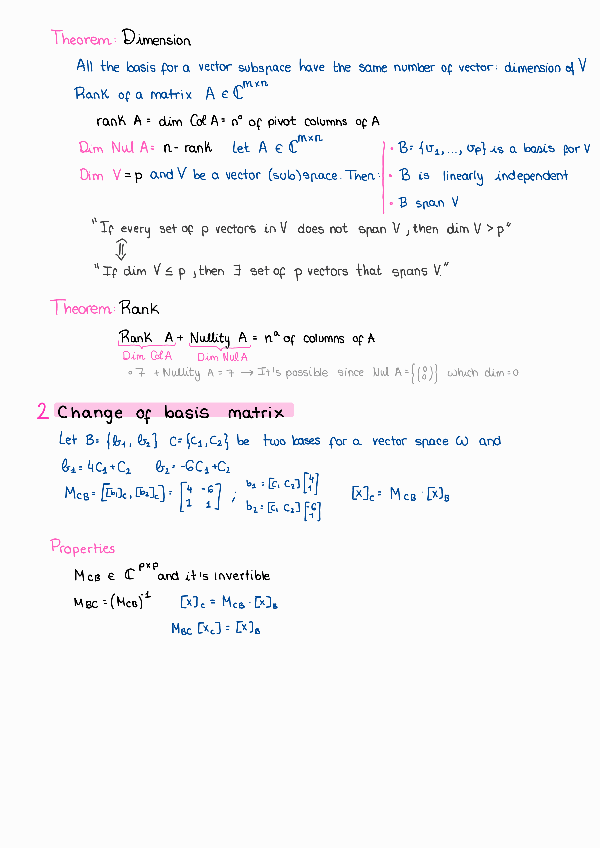 Theorem: Dimension
All the basis for a vector subspace have the same number of vector: dimension of V
Rank of a matrix A ∈ ℂ^m×n
rank A = dim Col A = nº of pivot columns of A
Dim Nul A = n - rank let A ∈ ℂ^m×n · B = {v₁, ..., vp} is a basis for V
Dim V = p and V be a vector (sub)space. Then: · B is linearly independent
· B span V
"If every set of p vectors in V does not span V, then dim V > p"
⇕
"If dim V ≤ p, then ∃ set of p vectors that spans V."
Theorem: Rank
Rank A + Nullity A = nº of columns of A
Dim Col A Dim Nul A
∘ 7 + Nullity A = 7 → It's possible since Nul A = {(0 0)} which dim = 0
2 Change of basis matrix
Let B = {b₁, b₂} C = {C₁, C₂} be two bases for a vector space W and
b₁ = 4C₁ + C₂ b₂ = -6C₁ + C₂
M_CB = [[b₁]_C, [b₂]_C] = [4 -6; 1 1] ; b₁ = [C₁ C₂] [4 1] b₂ = [C₁ C₂] [-6 1] [x]_C = M_CB · [x]_B
Properties
M_CB ∈ ℂ^p×p and it's invertible
M_BC = (M_CB)^-1 [x]_C = M_CB · [x]_B
M_BC [x_C] = [x]_B